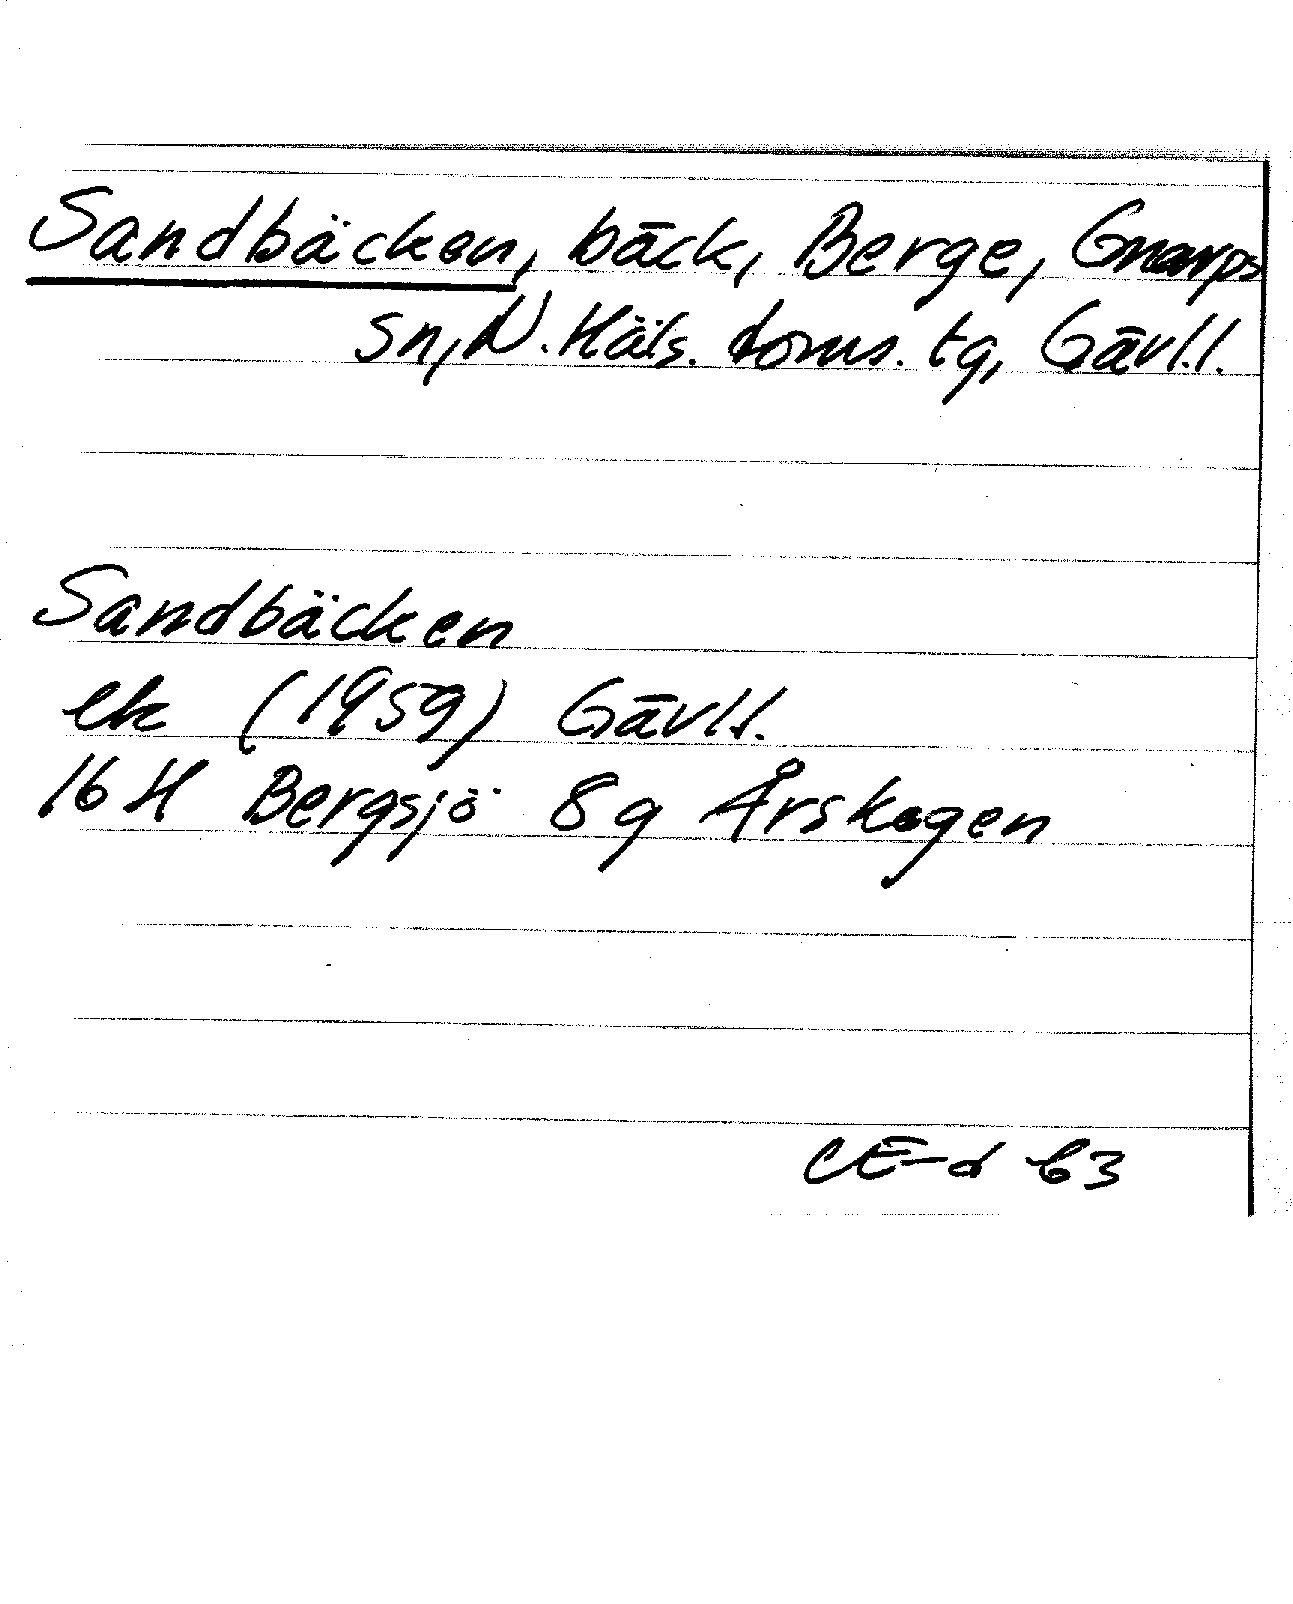 Sandbäcken, bäck, Berge, Gnarps
sn, N. Häls. doms. tg, Gävl.l.
Sandbäcken
ek (1959) Gävl.l.
16 H Bergsjö 8 g Årskogen
CE-d 63